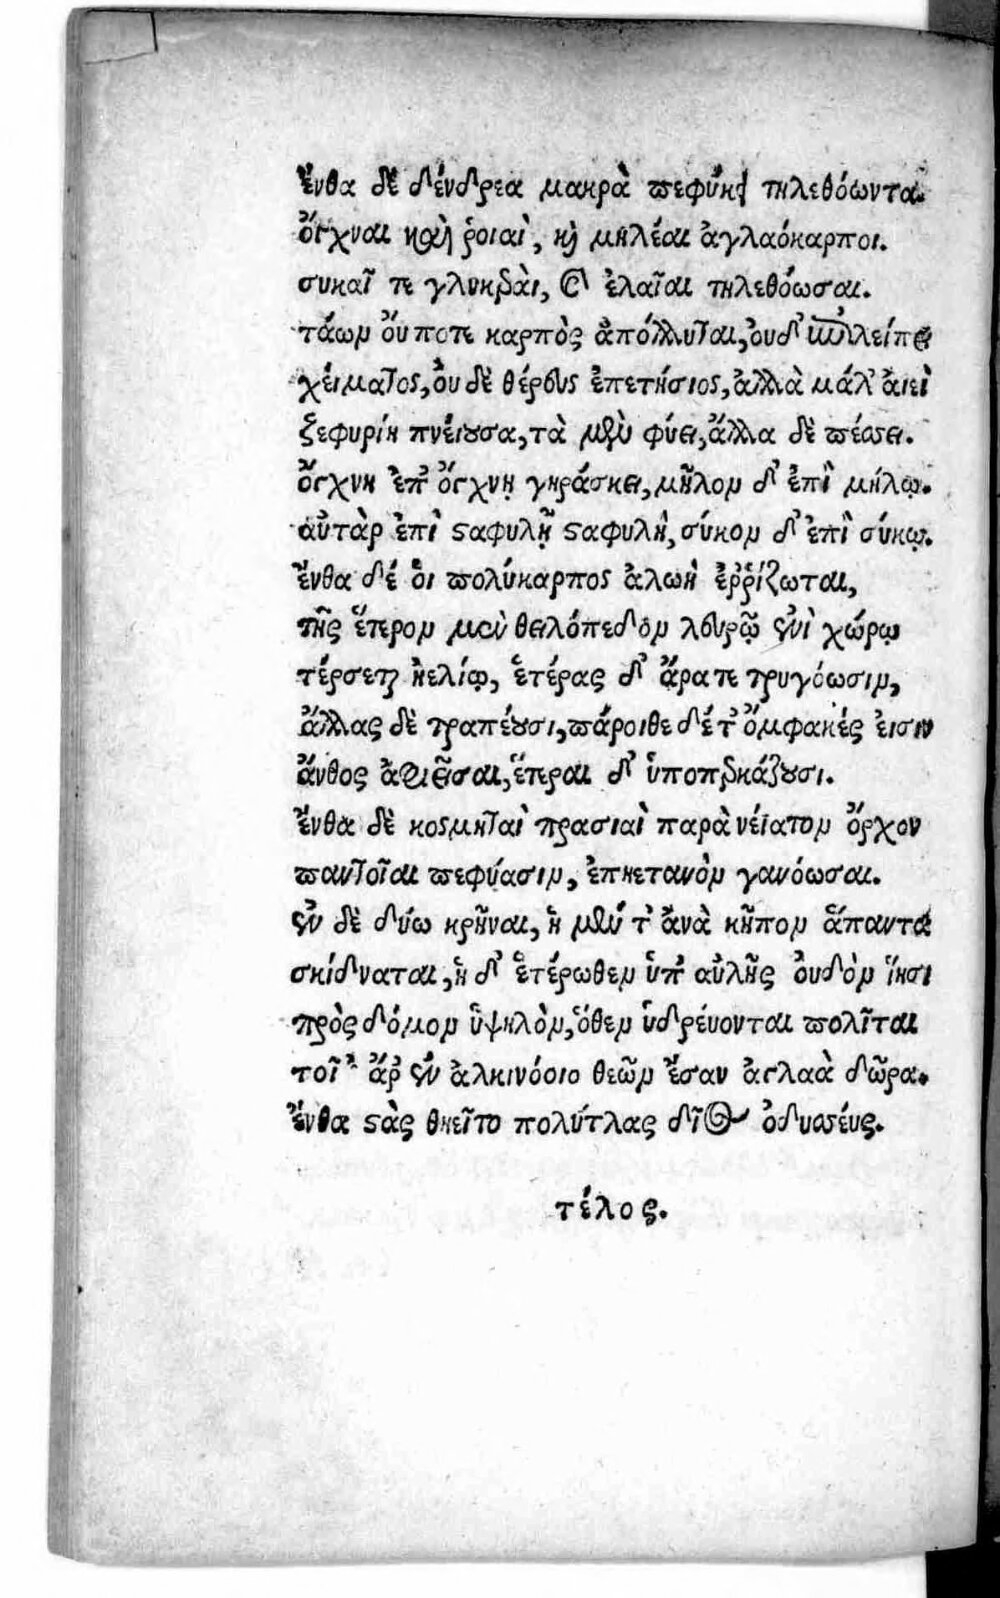 ἔνθα δὲ δένδρεα μακρὰ πεφύκει τηλεθόωντα.
ὄγχναι καὶ ῥοιαὶ, καὶ μηλέαι ἀγλαόκαρποι.
συκαῖ τε γλυκεραὶ, καὶ ἐλαῖαι τηλεθόωσαι.
τάων οὔ ποτε καρπὸς ἀπόλλυται, οὐδ' ἀπολείπει
χείματος, οὐδὲ θέρους ἐπετήσιος, ἀλλὰ μάλ' ἀιεὶ
ζεφυρίη πνείουσα, τὰ μὲν φύει, ἄλλα δὲ πέσσει.
ὄγχνη ἐπ' ὄγχνῃ γηράσκει, μῆλον δ' ἐπὶ μήλῳ.
αὐτὰρ ἐπὶ σταφυλῇ σταφυλή, σύκον δ' ἐπὶ σύκῳ.
ἔνθα δέ ὁι πολύκαρπος ἀλωὴ ἐῤῥίζωται,
τῆς ἕτερον μὲν θειλόπεδον λευρῷ ἐνὶ χώρῳ
τέρσεται ἠελίῳ, ἑτέρας δ' ἄρα τε τρυγόωσιν,
ἄλλας δὲ τραπέουσι, πάροιθε δέ τ' ὄμφακές εἰσιν
ἄνθος ἀφιεῖσαι, ἕτεραι δ' ὑποπερκάζουσι.
ἔνθα δὲ κοσμηταὶ πρασιαὶ παρὰ νείατον ὄρχον
παντοῖαι πεφύασιν, ἐπηετανὸν γανόωσαι.
ἐν δὲ δύω κρῆναι, ἡ μέν τ' ἀνὰ κῆπον ἅπαντα
σκίδναται, ἡ δ' ἑτέρωθεν ὑπ' αὐλῆς οὐδὸν ἵησι
πρὸς δόμον ὑψηλὸν, ὅθεν ὑδρεύονται πολῖται
τοῖ' ἄρ' ἐν ἀλκινόοιο θεῶν ἔσαν ἀγλαὰ δῶρα.
ἔνθα στὰς θηεῖτο πολύτλας δῖος ὀδυσσεύς.
τέλος.